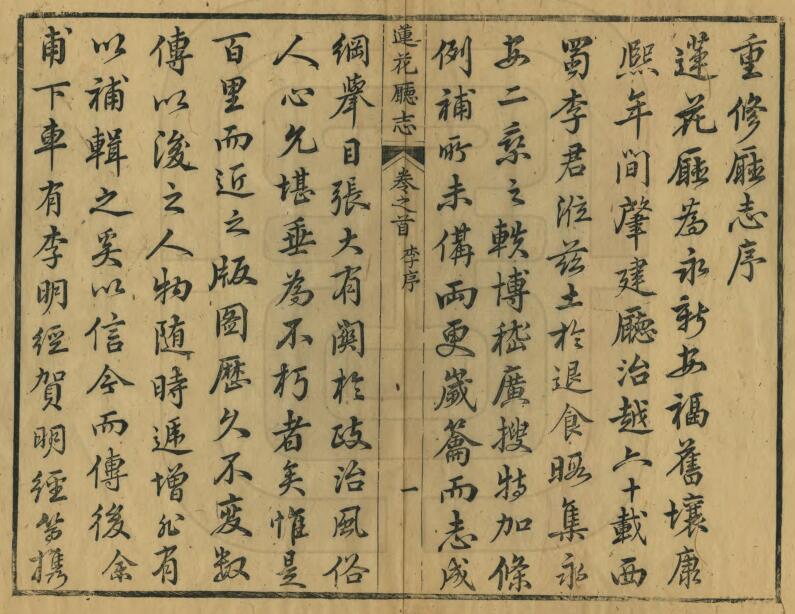 重修廳志序
蓮花廳為永新安福舊壤康
熙年間肇建廳治越六十載西
蜀李君涖兹土於退食暇集永
安二邑之軼博嵇廣搜特加條
例補所未備兩更歲籥而志成
蓮花廳志
卷之首
李序
一
綱舉目張大有關於政治風俗
人心允堪垂為不朽者矣惟是
百里而近之版圖歷久不变数
傳以後之人物随時遞增非有
以補輯之奚以信今而傳後余
甫下車有李明經賀明經等攜